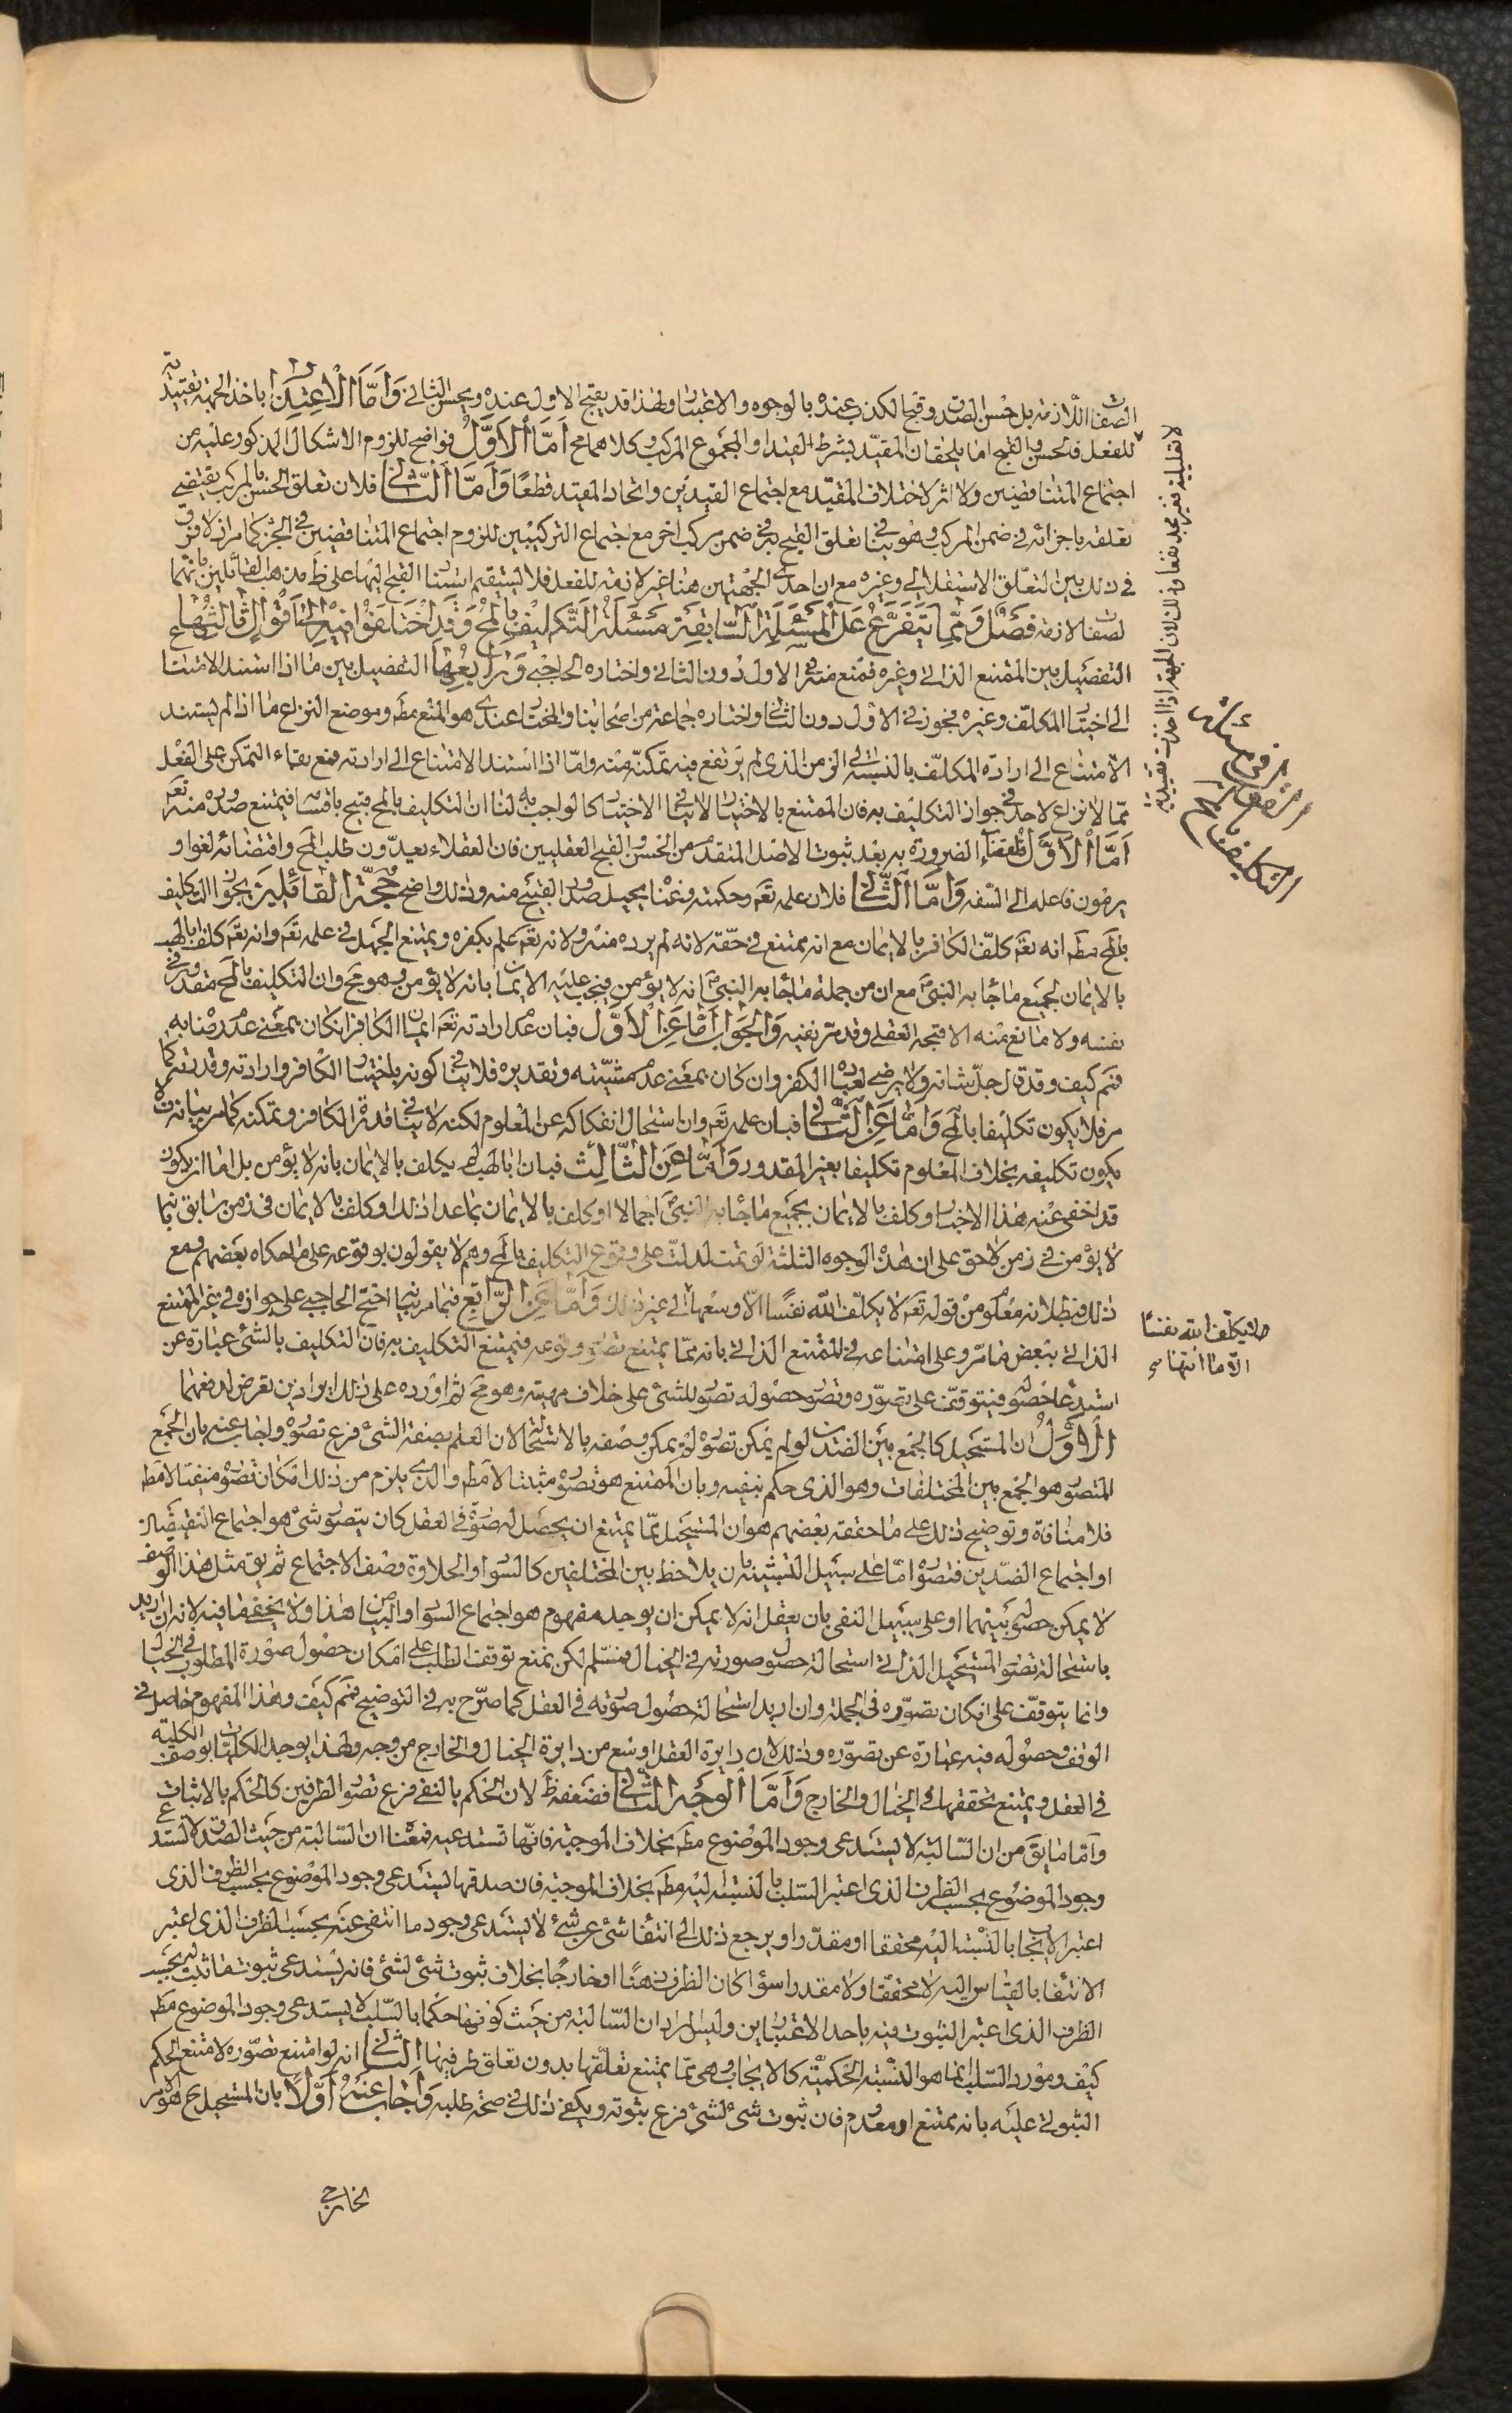 الصفات اللازمة بل حسن الصدق وقبح الكذب عنده بالوجوه والاعتبار ولهذا قد يقبح الاول عنده ويحسن الثاني وَأَمَّا الْاعتِذَار باخذ الجهة تقييدية
للفعل فالحسن والقبح اما يلحقان المقيّد بشرط القيد او المجموع المركب وكلاهما مح اَمَّا اْلاَوَّلُ فواضح للزوم الاشكال المذكور وعليه من
اجتماع المتناقضين ولا اثر لاختلاف المقيّد مع اجتماع القيدين واتحاد المقيد قطعًا وَأَمَّا اَلثَّانِي فلان تعلق الحسن بالمركب يقتضي
تعلقه باجزائه في ضمن المركب وهو ينافي تعلق القبح به في ضمن مركب اخر مع اجتماع التركيبين للزوم اجتماع المتناقضين في الجزء كما مر اذ لا فرق
في ذلك بين التعلّق الاستقلالي وغيره مع ان احدى الجهتين هنا غير لازمة للفعل فلا يستقيم استناد القبح اليها على ظ مذهب القائلين بانهما
لصفات لازمة فَصْلٌ وَمِمَّا يَتَفَرَّعُ عَلَى الْمَسْئَلَةِ السَّابِقَةِ مَسْئَلَةُ التَّكْلِيْفِ بِالْمُحِ وَقَدِ اخْتَلَفُوْا فِيْهِ عَلَى اَقْوَالٍ ثَالِثُهَا
التفصيل بين الممتنع الذاتي وغيره فمنع منه في الاول دون الثاني واختاره الحاجبي وَرَابِعُهَا التفصيل بين ما اذا استند الامتناع
الى اختيار المكلف وغيره فجوز في الاول دون الثاني واختاره جماعة من اصحابنا والمختار عندي هو المنع مطَ وموضع النزاع ما اذا لم يستند
الامتناع الى ارادة المكلّف بالنسبة الى الزمن الذي لم يرتفع فيه تمكنه منه وامّا اذا استند الامتناع الى ارادته فمع بقاء التمكن على الفعل
ممّا لا نزاع لاحد في جواز التكليف به فان الممتنع بالاختيار لا ينافي الاختيار كالواجب به لنا ان التكليف بالمح قبيح باقسامه فيمتنع صدوره منه تعَ
اَمَّا اْلاَوَّلُ فلقضاء الضرورة به بعد ثبوت الاصل المتقدم من الحسن والقبح العقليين فان العقلاء يعدّون طلب المح واقتضائه لغوا و
يرمون فاعله الى السّفه وَاَمَّا اَلثَّانِي فلان علمه تعَ وحكمته وغناه يحيل صدور القبيح منه وذلك واضح حُجَّةُ القَائِلِيْنَ بجواز التكليف
بالمح مطَ انه تعَ كلّف الكافر بالايمان مع انه ممتنع في حقّه لانه لم يرده منه ولانه تعَ علم بكفره ويمتنع الجهل في علمه تعَ وانه تعَ كلف ابا لهب
بالايمان لجميع ما جاء به النبيّ مع ان من جملة ما جاء به النبيّ انه لا يؤمن فيجب عليه الايمان بانه لا يؤمن وهو مح وان التكليف بالمح مقدور في
نفسه ولا مانع منه الا قبحه العقلي وقد مر نفيه وَالْجَوَابُ اَمَّا عَنِ اْلاَوَّلِ فبان عدم ارادته تعَ ايمان الكافر ان كان بمعنى عدم رضائه به
فمم كيف وقد قال جلّ شانه ولا يرضى لعباده الكفر وان كان بمعنى عدم مشيّته وتقديره فلا ينافي كونه باختيار الكافر وارادته وقد تقدم كما
مر فلا يكون تكليفا بالمح وَاَمَّا عَنِ الثَّانِي فبان علمه تعَ وان استحال انفكاكه عن المعلوم لكنه لا ينافي قدرة الكافر وتمكنه كما مر بيانه فلا
يكون تكليفه بخلاف المعلوم تكليفا بغير المقدور وَاَمَّا عَنِ الثَّالِثِ فبان ابا لهب لم يكلف بالايمان بانه لا يؤمن بل اما ان يكون
قد اخفى عنه هذا الاخبار وكلف بالايمان بجميع ما جاء به النبيّ اجمالا او كلف بالايمان بما عدا ذلك او كلف بالايمان في زمن سابق بما
لا يؤمن في زمن لاحق على ان هذه الوجوه الثلثة لو تمت لدلت على وقوع التكليف بالمح وهم لا يقولون بوقوعه على ما حكاه بعضهم ومع
ذلك فبطلانه معلوم من قوله تعَ لا يكلّف الله نفسًا الّا وسعها الى غير ذلك وَاَمَّا عَنِ الرَّابِعِ فبما مر بيانه احتج الحاجبي على جوازه في غير الممتنع
الذاتي ببعض ما مر وعلى امتناعه في الممتنع الذاتي بانه ممّا يمتنع تصوّر وقوعه فيمتنع التكليف به فان التكليف بالشئ عبارة عن
استدعاء حصوله فيتوقف على تصوّره وتصوّر حصوله تصوّر للشئ على خلاف مهيته وهو مح ثم اورده على ذلك ايرادين تعرض لدفعهما
اْلاَوَّلُ ان المستحيل كالجمع بين الضدين لو لم يمكن تصوّره لم يمكن وصفه بالاستحالة لان العلم بصفة الشئ فرع تصوره واجاب عنه بان الجمع
المتصور هو الجمع بين المختلفات وهو الذي حكم بنفيه وبان الممتنع هو تصوّره مثبتا لا مط والذي يلزم من ذلك امكان تصوّره منفيّا لا مط
فلا منافاة وتوضيح ذلك على ما حققه بعضهم هو ان المستحيل ممّا يمتنع ان يحصل له صورة في العقل كان يتصوّر شئ هو اجتماع النقيضين
او اجتماع الضدّين فتصوّره امّا على سبيل التشبيه بان يلاحظ بين المختلفين كالسواد والحلاوة وصف الاجتماع ثم يق مثل هذا الوصف
لا يمكن حصوله بينهما او على سبيل النفي بان يعقل انه لا يمكن ان يوجد مفهوم هو اجتماع السّواد والبياض هذا ولا يخفى ما فيه لانه ان اريد
باستحالة تصوّر المستحيل الذاتي استحالة حصول صورته في الخيال فمسلّم لكن نمنع توقف الطلب على امكان حصول صورة المطلوب في الخيال
وانما يتوقّف على امكان تصوّره في الجملة وان اريد استحالة حصول صورته في العقل كما صرّح به في التوضيح فمم كيف وهذا المفهوم حاصل في
الوقف وحصوله فيه عبارة عن تصوّره وذلك لان دايرة العقل اوسع من دايرة الخيال والخارج من وجه ولهذا يوجد الكليات بوصف الكلية
في العقل ويمتنع تحققها في الخيال والخارج وَاَمَّا اَلْوَجْهُ الثَّانِي فضعفه ظَ لان الحكم بالنفي فرع تصوّر الطرفين كالحكم بالاثبات
وامّا ما يقَ من ان السّالبة لا يستدعى وجود الموضوع مطَ بخلاف الموجبة فانّها تستدعيه فمعناه ان السّالبة من حيث الصدق لا تستدعي
وجود الموضوع بحسب الظرف الذي اعتبر السّلب بالنسبة اليه مطَ بخلاف الموجبة فان صدقها يستدعى وجود الموضوع بحسب الظرف الذي
اعتبر الايجاب بالنسبة اليه محققا او مقدّرا ويرجع ذلك الى انتفاء شئ عن شئ لا يستدعى وجود ما انتفى عنه بحسب الظرف الذي اعتبر
الانتفاء بالقياس اليه لا محققًا ولا مقدرا سواء كان الظرف ذهنًا او خارجًا بخلاف ثبوت شئ لشئ فانه يستدعى ثبوت ما ثبت له بحسب
الظرف الذي اعتبر الثبوت فيه باحد الاعتبارين وليس المراد ان السّالبة من حيث كونها حكما بالسّلب لا يستدعى وجود الموضوع مطَ
كيف ومورد السّلب انما هو النسبة الحكميّة كالايجاب وهى ممّا يمتنع تعلّقها بدون تعلق طرفيها الثَّانِي انه لو امتنع تصوّره لامتنع الحكم
الثبوتي عليه بانه ممتنع او معدوم فان ثبوت شئ لشئ فرع ثبوته ويكفى ذلك في صحة طلبه وَاَجَابَ عَنْهُ اَوَّلًا بان المستحيل مح هو الامر
الخارجي
لا تعليلية فغير مجد نفعا وذلك لان الجهة اذا اخذت تقييدية
الثمرة في مسئلة
التكليف بالمح
لا يكلف الله نفسًا
الّا ما اتٰها